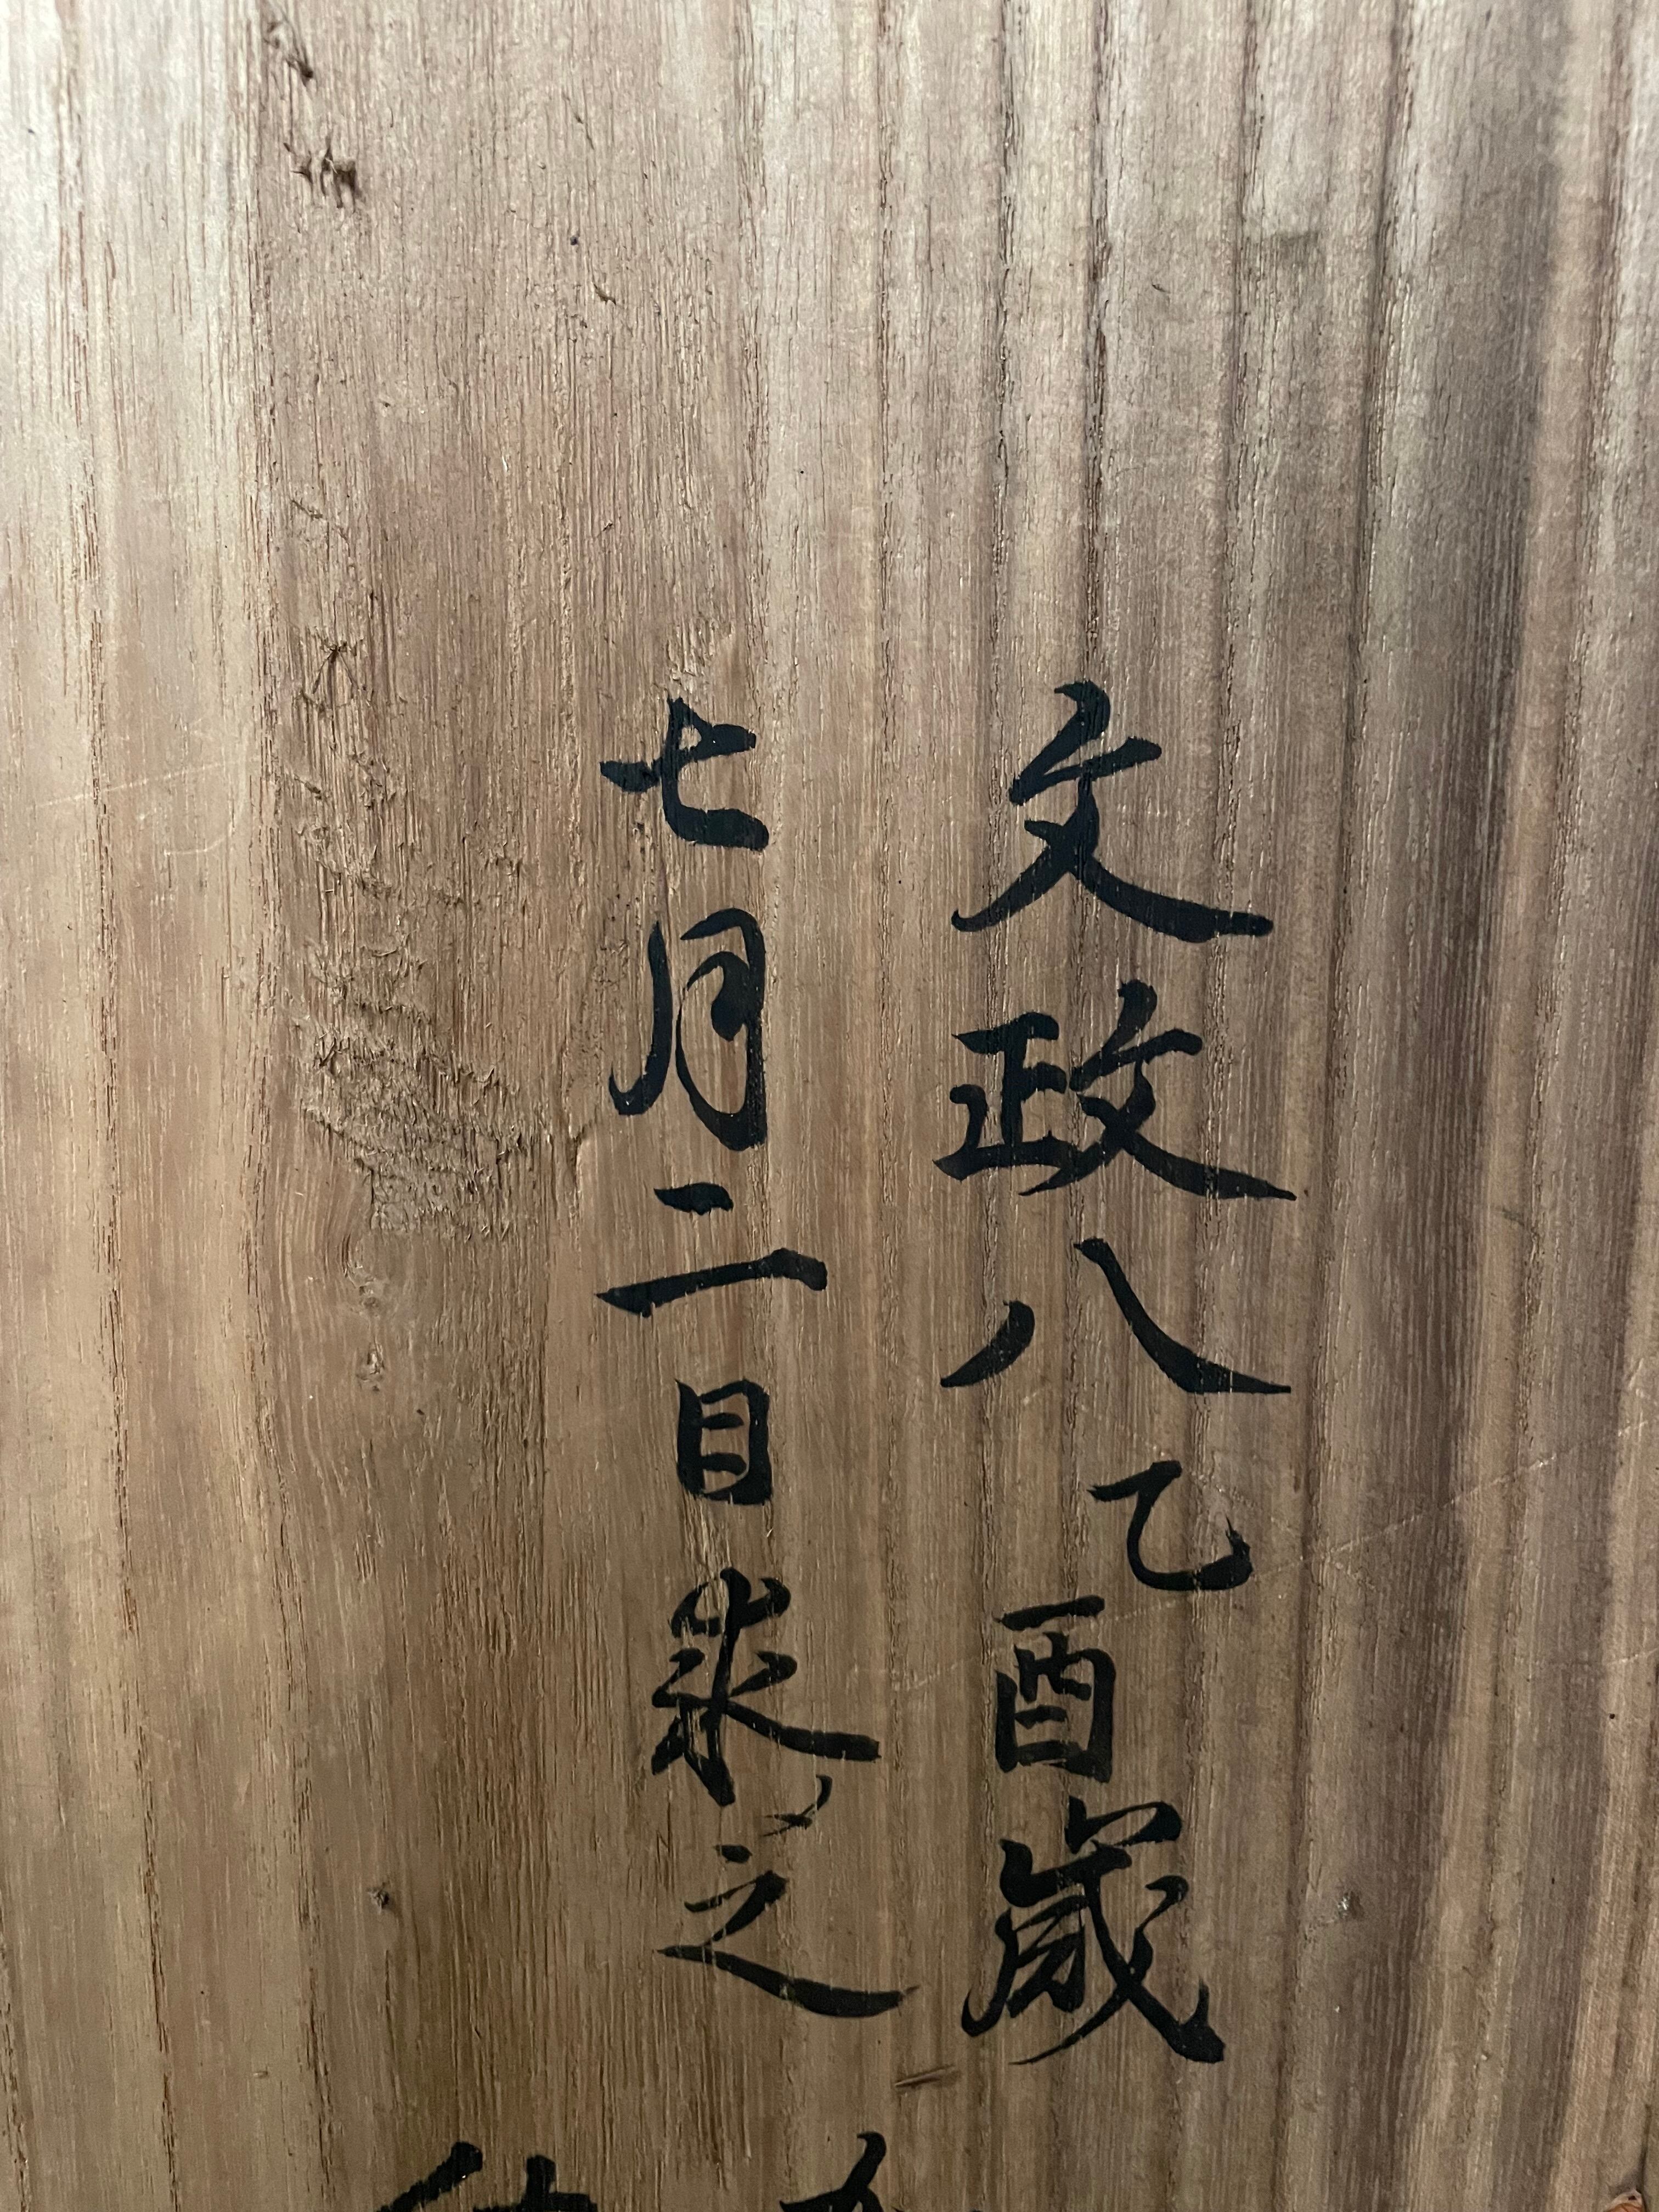 文政八乙酉歳
七月二日求之